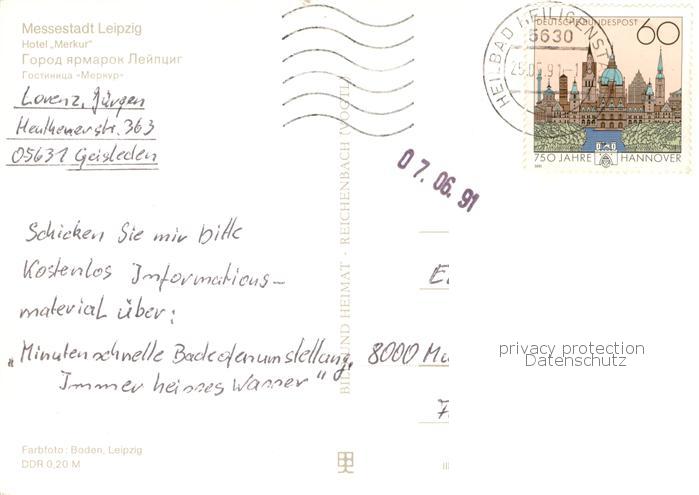 Messestadt Leipzig
Hotel „Merkur"
Город ярмарок Лейпциг
Гостиница «Меркур»
Lorenz, Jürgen
Heuthenerstr. 363
05631 Geisleden
Schicken Sie mir bitte
Kostenlos Informations-
material über:
„Minutenschnelle Badeofenumstellung,
Immer heisses Wasser"
Farbfoto: Boden, Leipzig
DDR 0,20 M
BILD UND HEIMAT · REICHENBACH (VOGTL)
HEILBAD HEILIGENST
5630
DEUTSCHE BUNDESPOST
60
750 JAHRE HANNOVER
07.06.91
E
8000 Mu
privacy protection
Datenschutz